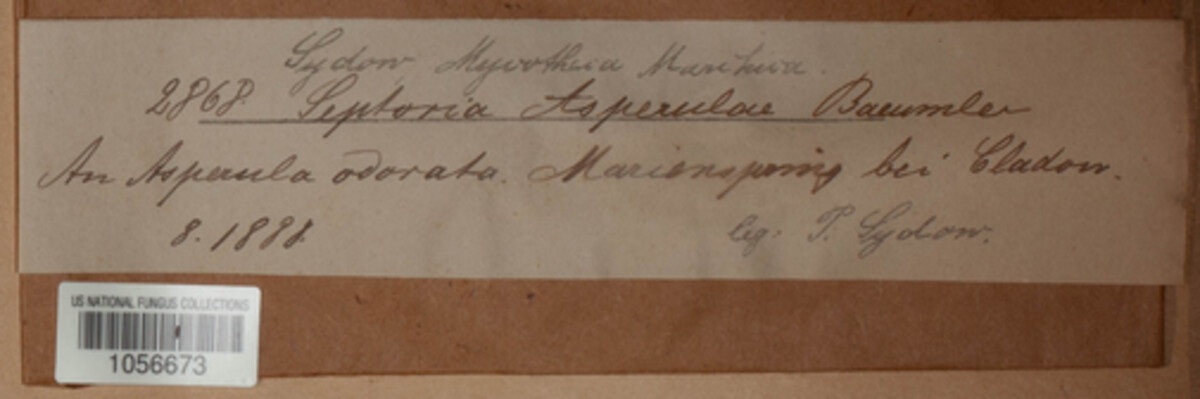 Sydow, Mycotheca Marchica.
2868. Septoria Asperulae Baeumler
An Asperula odorata. Marienspring bei Cladow.
8. 1888.
leg. P. Sydow.
US NATIONAL FUNGUS COLLECTIONS
1056673